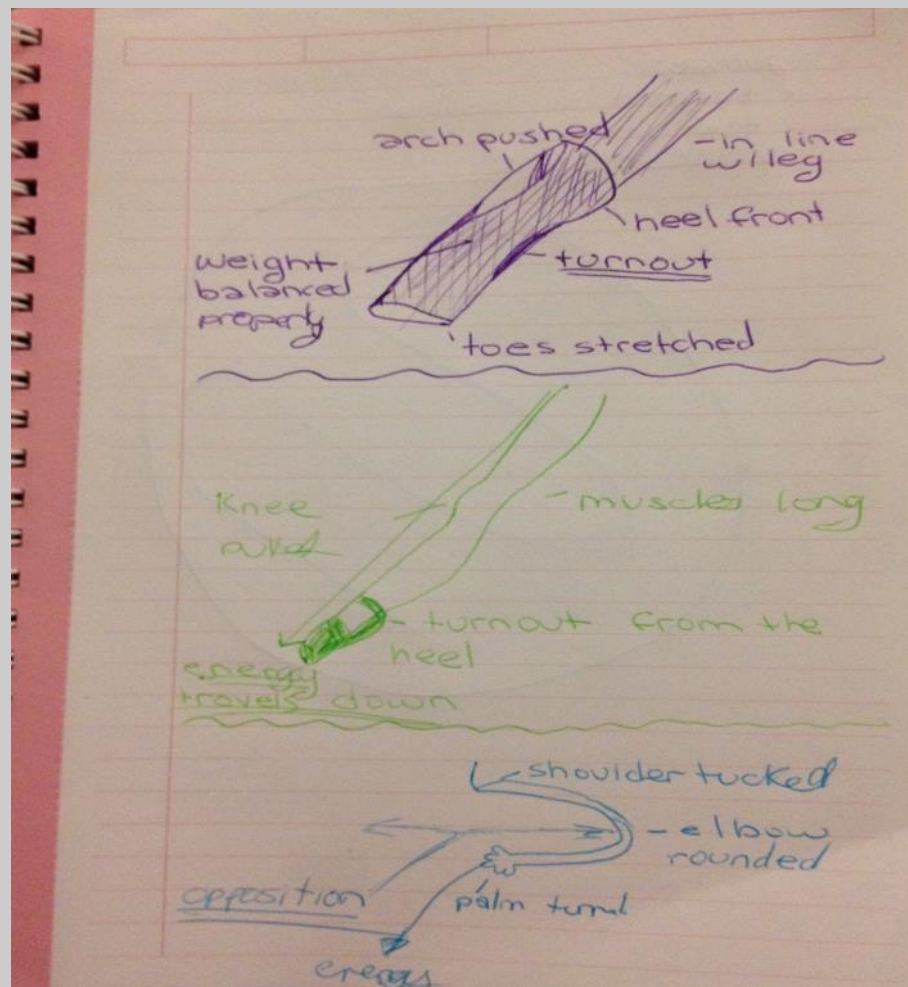 arch pushed
-in line
w/leg
heel front
turnout
weight
balanced
properly
toes stretched
Knee
muscles long
-turnout from the
heel
energy
travels down
shoulder tucked
-elbow
rounded
opposition
palm
energy